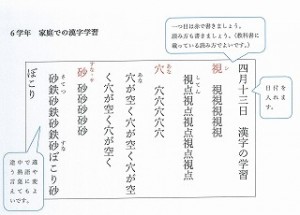 6学年　家庭での漢字学習
一つ目は赤で書きましょう。
読み方も書きましょう。(教科書に
載っている読み方でよいです。)
日付を
入れま
す。
四月十三日　漢字の学習
シ
視　視視視視視
してん
視点視点視点視点視点
あな
穴　穴穴穴穴穴
あな
穴が空く穴が空く穴が空
く穴が空く穴が空く
すな・サ
砂　砂砂砂砂
さてつ　すな
砂鉄砂鉄砂鉄砂ぼこり砂
ぼこり